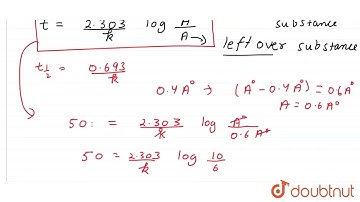 t = 2.303/k log A°/A → substance
left over substance
t½ = 0.693/k
0.4A° → (A° - 0.4A°) = 0.6A°
A = 0.6A°
50 = 2.303/k log A°/0.6A°
50 = 2.303/k log 10/6
doubtnut